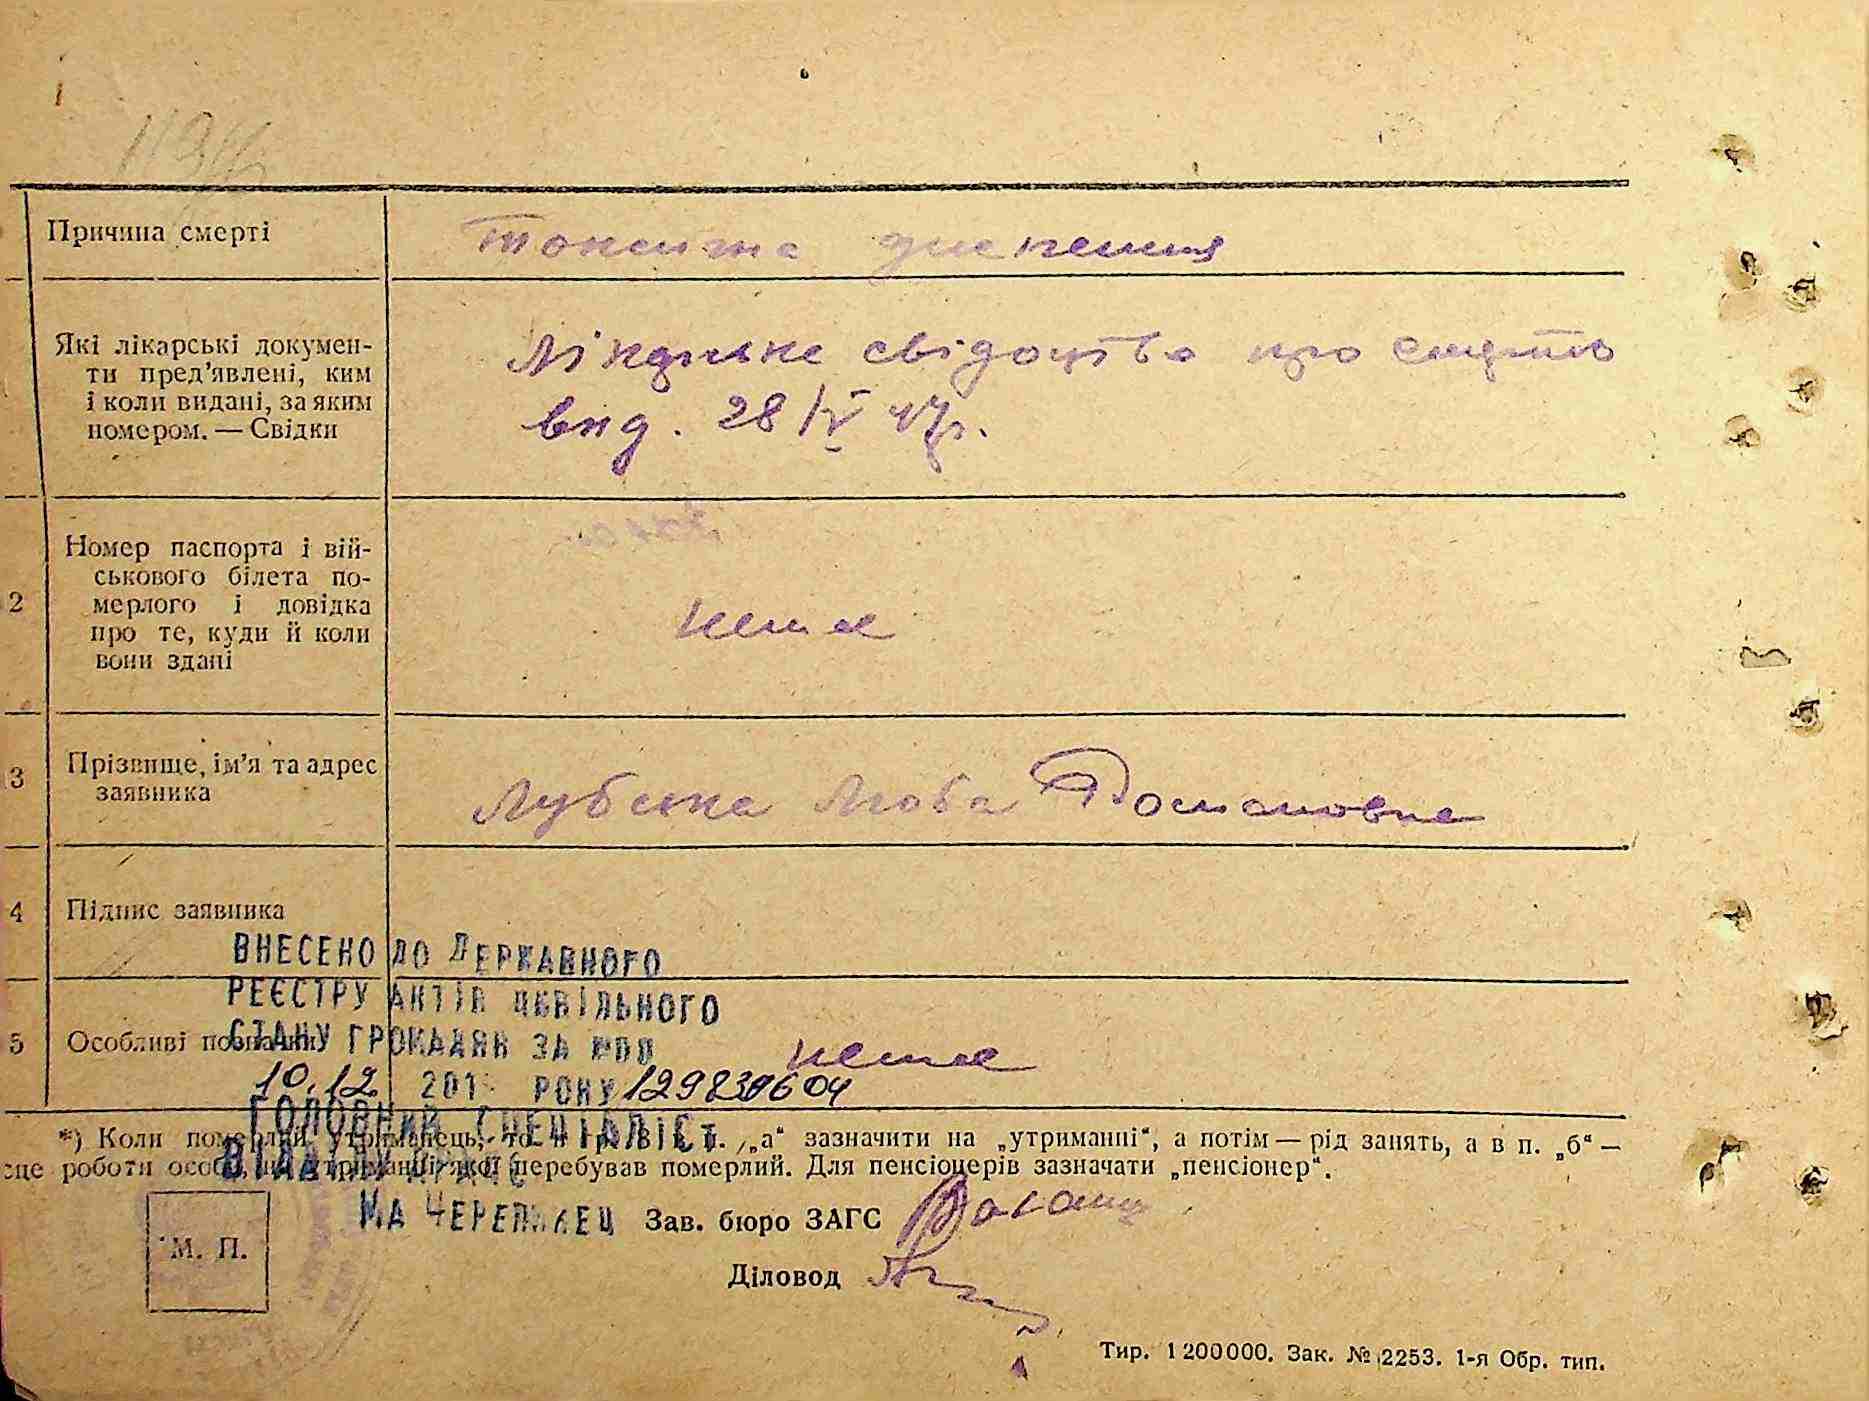 Причина смерті
токсична диспепсия
Які лікарські докумен-
ти пред’явлені, ким
і коли видані, за яким
номером. — Свідки
Лікарське свідоцтво про смерть
вид. 28/IV 47р.
2
Номер паспорта і вій-
ськового білета по-
мерлого і довідка
про те, куди й коли
вони здані
нема
3
Прізвище, ім’я та адрес
заявника
Люба Романовна
4
Підпис заявника
ВНЕСЕНО ДО ДЕРЖАВНОГО
РЕЄСТРУ АКТІВ ЦИВІЛЬНОГО
СТАНУ ГРОМАДЯН ЗА
5
Особливі позначки
нема
10.12 201 РОКУ
ГОЛОВНИЙ СПЕЦІАЛІСТ
*) Коли померлий утриманець, то в гр. п. „а“ зазначити на „утриманні“, а потім — рід занять, а в п. „б“ —
сце роботи особи, на утриманні якої перебував померлий. Для пенсіонерів зазначати „пенсіонер“.
ВІДДІЛУ ДРАЦС
МА ЧЕРЕПИНЕЦ
Зав. бюро ЗАГС
М. П.
Діловод
Тир. 1200000. Зак. № 2253. 1-я Обр. тип.